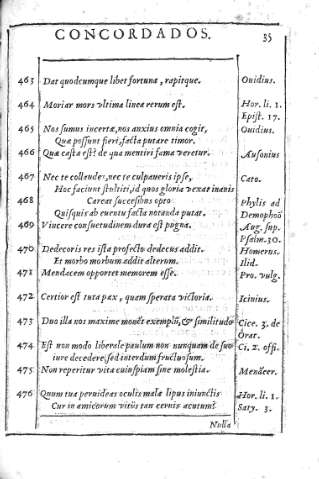 CONCORDADOS. 35
463 Dat quodcumque libet fortuna, rapitque. Ouidius.
464 Moriar mors vltima linea rerum est. Hor. li. 1.
Epist. 17.
465 Nos sumus incertæ, nos anxius omnia cogit, Ouidius.
Quæ possunt fieri, facta putare timor.
466 Quæ casta est? de qua mentiri fama veretur. Ausonius
467 Nec te collendes, nec te culpaueris ipse, Cato.
Hoc faciunt stultiri, id quos gloria vexat inanis
468 Careat succesibus opto Phylis ad
Quisquis ab euentu facta notanda putat. Demophoõ
469 Vincere consuetudinem dura est pugna. Aug. sup.
Psalm. 30.
470 Dedecoris res ista profecto dedecus addit. Homerus.
Et morbo morbum addit alterum. Ilid.
471 Mendacem opportet memorem esse. Pro. vulg.
472 Certior est tuta pax, quam sperata victoria. Icinius.
473 Duo illa nos maxime monẽt exemplũ, & similitudo Cice. 3. de
Orat.
474 Est non modo liberale paulum non nunquam de suo Ci. 2. offi.
iure decedere, sed interdum fructuosum.
475 Non reperitur vita cuiuspiam sine molestia. Menãder.
476 Quum tua peruideas oculis mala lipus iniunctis Hor. li. 1.
Cur in amicorum vitiis tan cernis acutum? Saty. 3.
Nulla